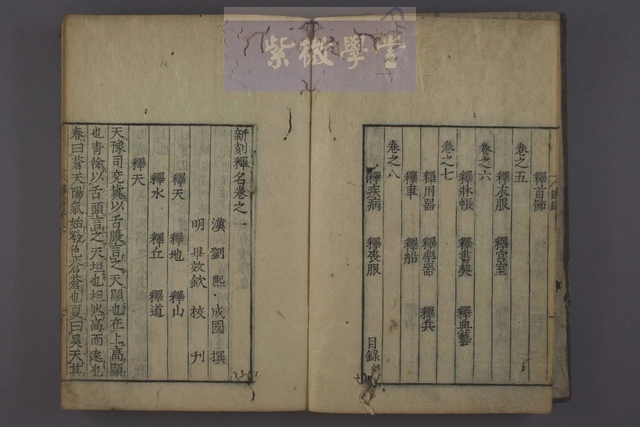 紫微學堂
釋首飾
卷之五
釋衣服 釋宮室
卷之六
釋牀帳 釋書契 釋典藝
卷之七
釋用器 釋樂器 釋兵
釋車 釋船
卷之八
釋疾病 釋喪服
目錄終
新刻釋名卷之一
漢 劉熙 成國 撰
明 畢效欽 校刊
釋天 釋地 釋山
釋水 釋丘 釋道
釋天
天豫司兖冀以舌腹言之天顯也在上高顯
也青徐以舌頭言之天坦也坦然高而遠也
春曰蒼天陽氣始發色蒼蒼也夏曰昊天其